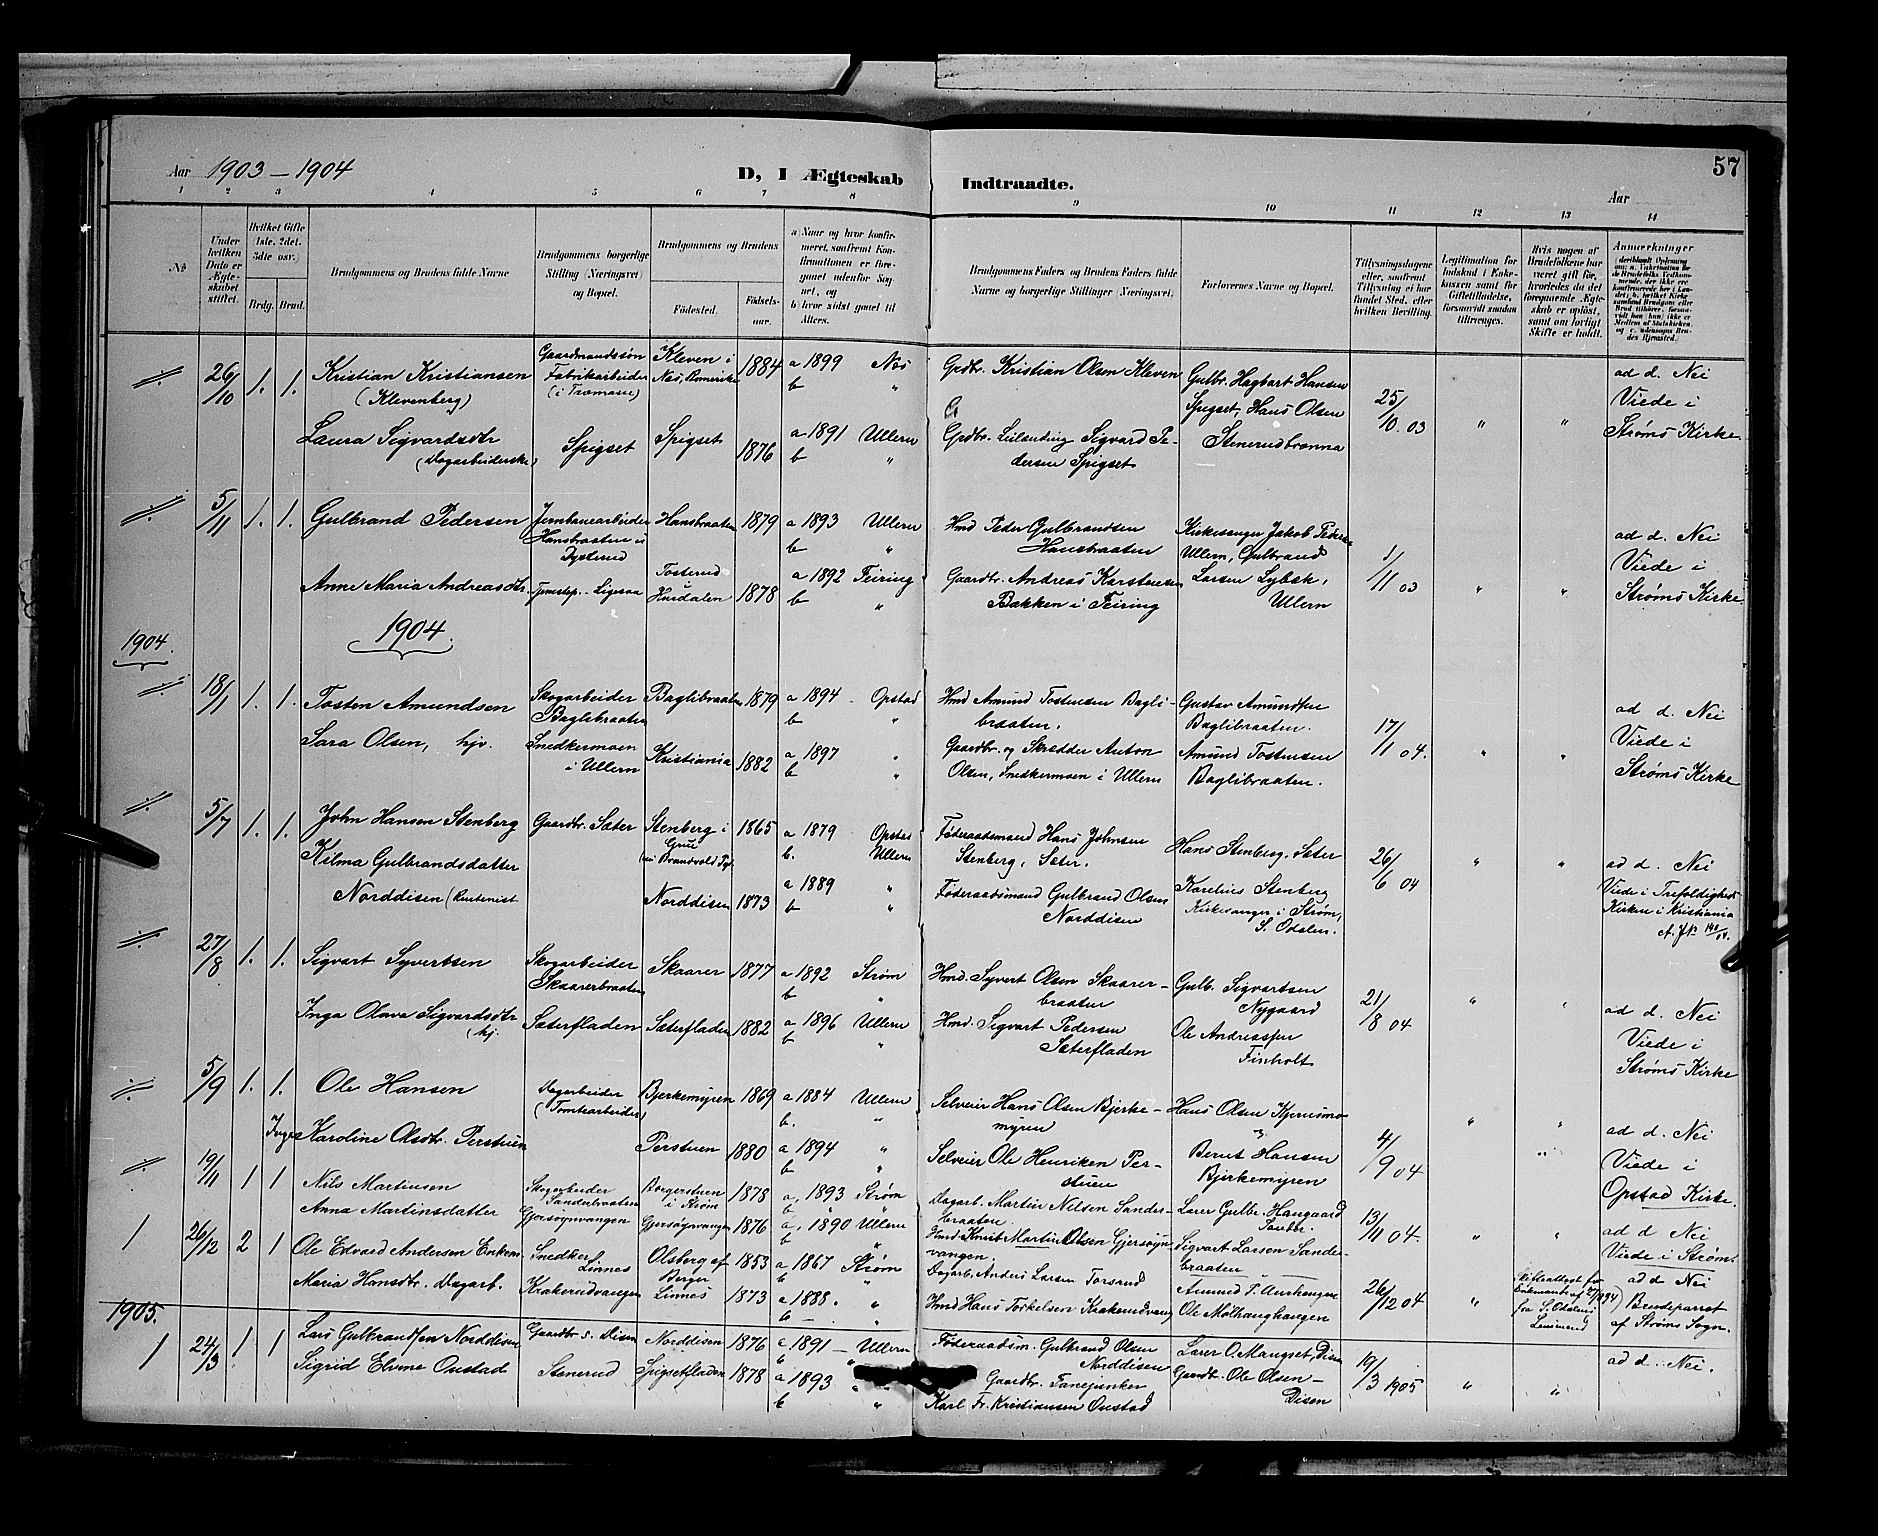 Aar 1903 – 1904
D, I Ægteskab Indtraadte.
Aar
57
1 2 3 4 5 6 7 8 9 10 11 12 13 14
No
Under hvilken Dato er Ægteskabet stiftet.
Hvilket Gifte (1ste, 2det, 3die osv.)
Brdg. Brud.
Brudgommens og Brudens fulde Navne
Brudgommens borgerlige Stilling (Næringsvei) og Bopæl.
Brudgommens og Brudens
Fødested.
Fødselsaar.
a) Naar og hvor konfirmeret, saafremt Konfirmationen er foregaaet udenfor Sognet, og
b) hvor sidst gaaet til Alters.
Brudgommens Faders og Brudens Faders fulde Navne og borgerlige Stillinger (Næringsvei)
Forlovernes Navne og Bopæl.
Tillysningsdagene eller, saafremt Tillysning ei har fundet Sted, efter hvilken Bevilling.
Legitimation for Indskud i Enkekassen samt for Giftetilladelse, forsaavidt saadan tiltrænges.
Hvis nogen af Brudefolkene har været gift før, hvorledes da det foregaaende Ægteskab er opløst, samt om lovligt Skifte er holdt.
Anmerkninger
26/10 1. 1. Kristian Kristiansen (Klevenberg) Gaardmandssøn Fabrikarbeider (i Tromøen) Kleven i Nes, Romerike 1884 a 1899 Nes b " Grdbr. Kristian Olsen Kleven Gulbr. Hagbart Hansen Spigset, Hans Olsen Stenerudbrønna 25/10 03 " " ad d. Nei Viede i Strøms Kirke
Laura Sigvardsdtr (Dagarbeiderske) Spigset Spigset 1876 a 1891 Ullern b " Grdbr. Leilending Sigvard Pedersen Spigset
5/11 1. 1. Gulbrand Pedersen Jernbanearbeider Hansbraaten u Dysterud Hansbraaten 1879 a 1893 Ullern b " Hmd Peder Gulbrandsen Hansbraaten Kirkesanger Jakob Peders Ullern, Gulbrand Larsen Lybek, Ullern 1/11 03 " " ad d. Nei Viede i Strøms Kirke.
Anne Maria Andreasdtr. Tjenstep. Ligesaa Tosterud Hurdalen 1878 a 1892 Feiring b " Gaardbr. Andreas Karstensen Bakken i Feiring
1904. 1904.
18/1 1. 1. Tosten Amundsen Skogarbeider Baglibraaten Baglibraaten 1879 a 1894 Opstad b " Hmd Amund Tostensen Baglibraaten. Gustav Amundsen Baglibraaten. 17/1 04. " " ad d. Nei Viede i Strøms Kirke
Sara Olsen, hjv. Snedkermoen i Ullern Kristiania 1882 a 1897 " b " Gaardbr. og Skrædder Anton Olsen, Snedkermoen i Ullern Amund Tostensen Baglibraaten.
5/7 1. 1. John Hansen Stenberg Gaardbr. Sæter Stenberg i Grue 1865 a 1879 Opstad b. Ullern Føderaadsmand Hans Johnsen Stenberg, Sæter. Hans Stenberg, Sæter 26/6 04 " " ad d. Nei Viede i Trefoldigheds Kirken i Kristiania
Kilma Gulbrandsdatter Norddisen Norddisen 1873 a 1889 " b " Føderaadsmand Gulbrand Olsen Norddisen Karelius Stenberg Kirkesanger i Strøm, S. Odalen.
27/8 1. 1. Sigvart Syvertsen Skogarbeider Skaarerbraaten Skaarer 1877 a 1892 Strøm b " Hmd. Syvert Olsen Skaarerbraaten Gulb. Sigvartsen Nygaard 21/8 04 " " ad d. Nei Viede i Strøms Kirke
Inga Olava Sigvardsdtr (hj. Sæterfladen Sæterfladen 1882 a 1896 Ullern b " Hmd. Sigvart Pedersen Sæterfladen Ole Andreassen Finholt
5/9 1. 1. Ole Hansen Dagarbeider (Tomtearbeider) Bjerkemyren 1869 a 1884 Ullern b. " Selveier Hans Olsen Bjerkemyren Hans Olsen Kjernsmo 4/9 04 " " ad d. Nei Viede i Opstad Kirke.
Inge Karoline Olsdtr. Perstuen Perstuen 1880 a 1894 " b " Selveier Ole Henriksen Perstuen Bernt Hansen Bjerkemyren
19/11 1 1 Nils Martinsen Skogarbeider Sanderbraaten Borgerstuen i Strøm 1878 a, 1893 Strøm b " " Dagarb. Martin Nilsen Sanderbraaten Lærer Gulbr. Haugaard Sander. 13/11 04. " " ad d Nei Viede i Strøm.
Anna Martinsdatter Gjersøgnvangen Gjersøgnvangen 1876 a, 1890 Ullern b " Hmd Knut Martin Olsen Gjersøgnvangen. Sigvart Larsen Sanderbraaten
1 26/12 2 1 Ole Edvard Andersen Enkem. Snedker Linnes Olsberg af Berger Linnes 1853 a 1867 Strøm b " Dagarb. Anders Larsen Torsrud Amund P. Aurhaugen 26/12 04 " ad d Nei Brudeparret af Strøms Sogn.
Maria Hansdtr. Dagarb. Krakerudvangen 1873 a 1888. " b – " Hmd Hans Torkelsen Krakerudvang Ole Molhaughaugen
1905.
1 24/3 1 1 Lars Gulbrandsen Norddisen Gaardbr S. Disen Norddisen 1876 a 1891 – Ullern b " Føderaadsm. Gulbrand Olsen Norddisen Lærer O. Mangset, Disen 19/3 1905 " " ad d. Nei.
Sigrid Elvine Onstad Stenerud Spigsetfladen 1878 a 1893 " b " Gaardbr. Fanejunker Karl Fr. Kristiansen Onstad Gaardbr. Ole Olsen – Disen